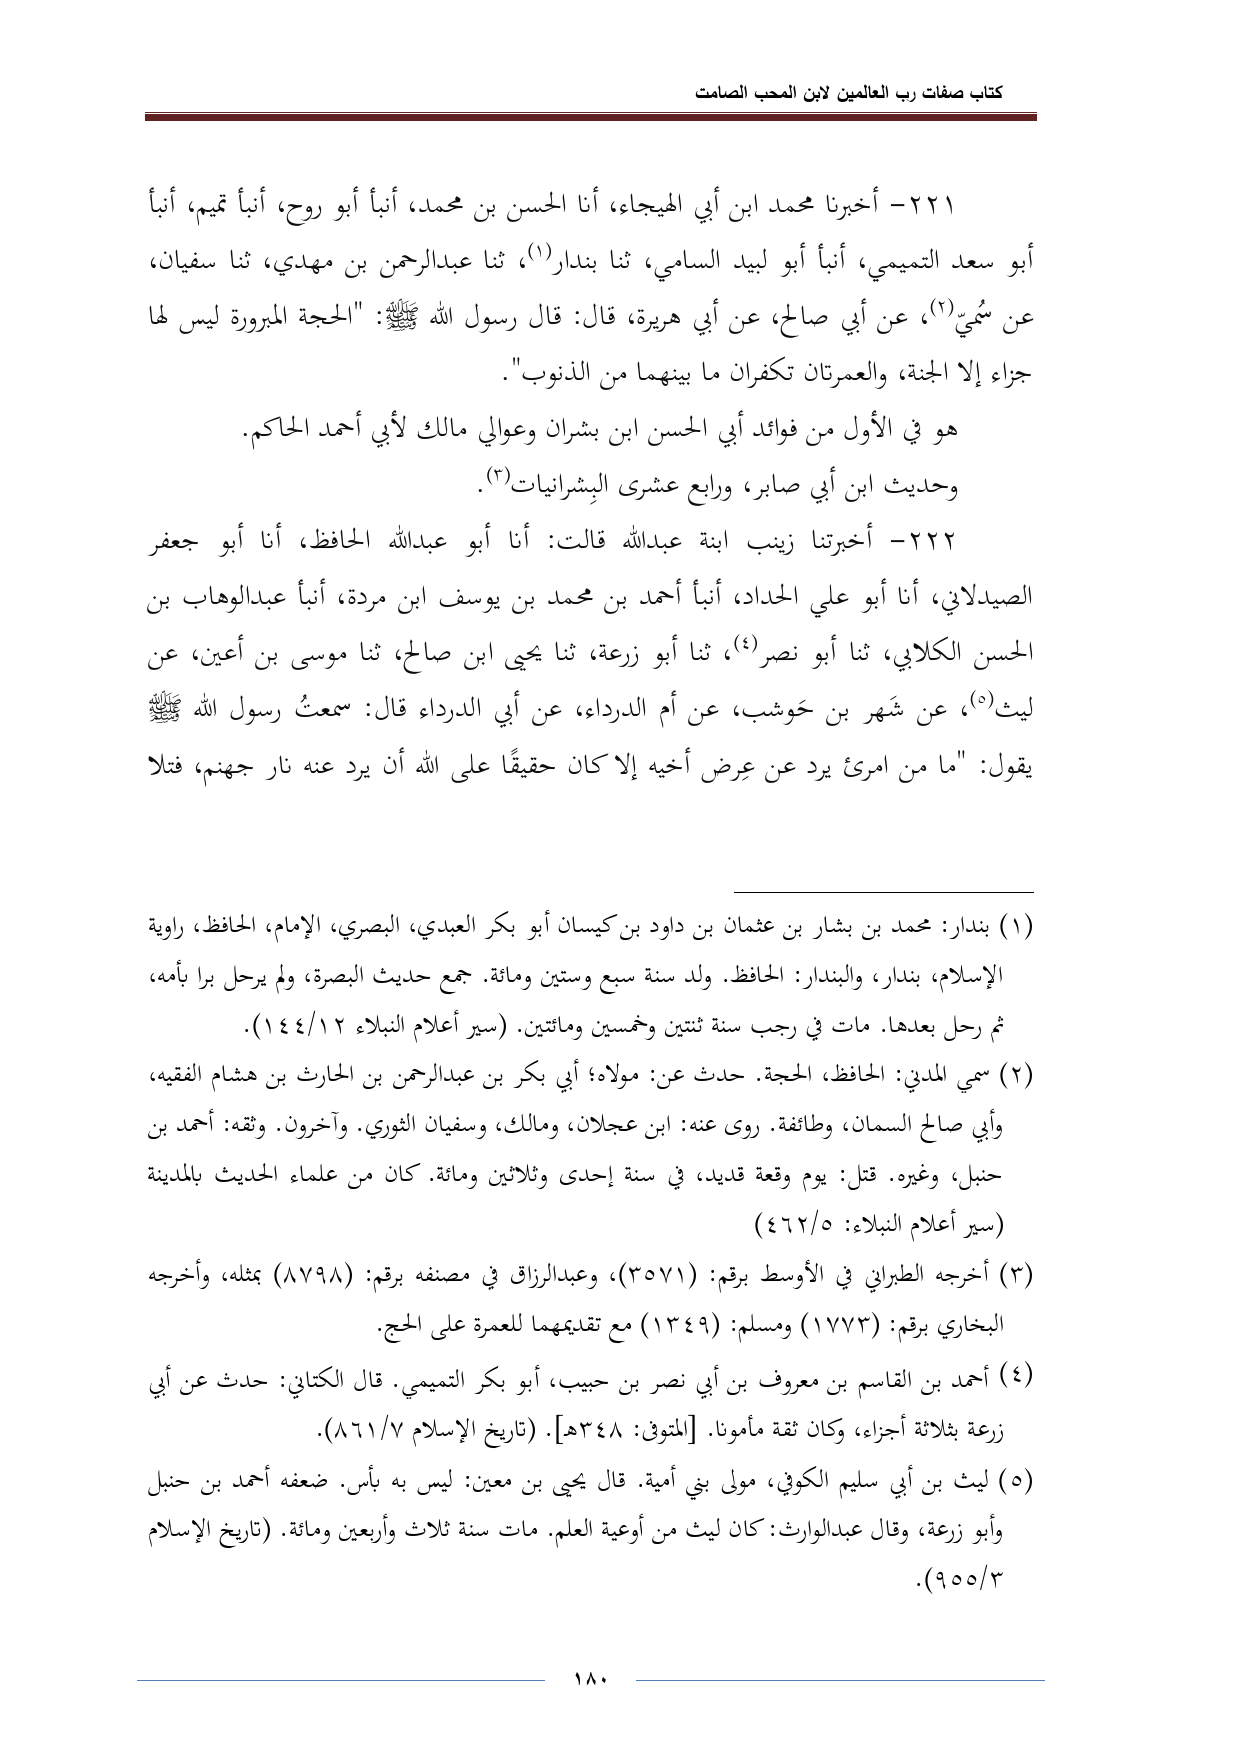 كتاب صفات رب العالمين لابن المحب الصامت
٢٢١- أخبرنا محمد ابن أبي الهيجاء، أنا الحسن بن محمد، أنبأ أبو روح، أنبأ تميم، أنبأ
أبو سعد التميمي، أنبأ أبو لبيد السامي، ثنا بندار(١)، ثنا عبدالرحمن بن مهدي، ثنا سفيان،
عن سُميّ(٢)، عن أبي صالح، عن أبي هريرة، قال: قال رسول الله ﷺ: "الحجة المبرورة ليس لها
جزاء إلا الجنة، والعمرتان تكفران ما بينهما من الذنوب".
هو في الأول من فوائد أبي الحسن ابن بشران وعوالي مالك لأبي أحمد الحاكم.
وحديث ابن أبي صابر، ورابع عشرى البِشرانيات(٣).
٢٢٢- أخبرتنا زينب ابنة عبدالله قالت: أنا أبو عبدالله الحافظ، أنا أبو جعفر
الصيدلاني، أنا أبو علي الحداد، أنبأ أحمد بن محمد بن يوسف ابن مردة، أنبأ عبدالوهاب بن
الحسن الكلابي، ثنا أبو نصر(٤)، ثنا أبو زرعة، ثنا يحيى ابن صالح، ثنا موسى بن أعين، عن
ليث(٥)، عن شَهر بن حَوشب، عن أم الدرداء، عن أبي الدرداء قال: سمعتُ رسول الله ﷺ
يقول: "ما من امرئ يرد عن عِرض أخيه إلا كان حقيقًا على الله أن يرد عنه نار جهنم، فتلا
(١) بندار: محمد بن بشار بن عثمان بن داود بن كيسان أبو بكر العبدي، البصري، الإمام، الحافظ، راوية
الإسلام، بندار، والبندار: الحافظ. ولد سنة سبع وستين ومائة. جمع حديث البصرة، ولم يرحل برا بأمه،
ثم رحل بعدها. مات في رجب سنة ثنتين وخمسين ومائتين. (سير أعلام النبلاء ١٤٤/١٢).
(٢) سمي المدني: الحافظ، الحجة. حدث عن: مولاه؛ أبي بكر بن عبدالرحمن بن الحارث بن هشام الفقيه،
وأبي صالح السمان، وطائفة. روى عنه: ابن عجلان، ومالك، وسفيان الثوري. وآخرون. وثقه: أحمد بن
حنبل، وغيره. قتل: يوم وقعة قديد، في سنة إحدى وثلاثين ومائة. كان من علماء الحديث بالمدينة
(سير أعلام النبلاء: ٤٦٢/٥)
(٣) أخرجه الطبراني في الأوسط برقم: (٣٥٧١)، وعبدالرزاق في مصنفه برقم: (٨٧٩٨) بمثله، وأخرجه
البخاري برقم: (١٧٧٣) ومسلم: (١٣٤٩) مع تقديمهما للعمرة على الحج.
(٤) أحمد بن القاسم بن معروف بن أبي نصر بن حبيب، أبو بكر التميمي. قال الكتاني: حدث عن أبي
زرعة بثلاثة أجزاء، وكان ثقة مأمونا. [المتوفى: ٣٤٨هـ]. (تاريخ الإسلام ٨٦١/٧).
(٥) ليث بن أبي سليم الكوفي، مولى بني أمية. قال يحيى بن معين: ليس به بأس. ضعفه أحمد بن حنبل
وأبو زرعة، وقال عبدالوارث: كان ليث من أوعية العلم. مات سنة ثلاث وأربعين ومائة. (تاريخ الإسلام
٩٥٥/٣).
١٨٠